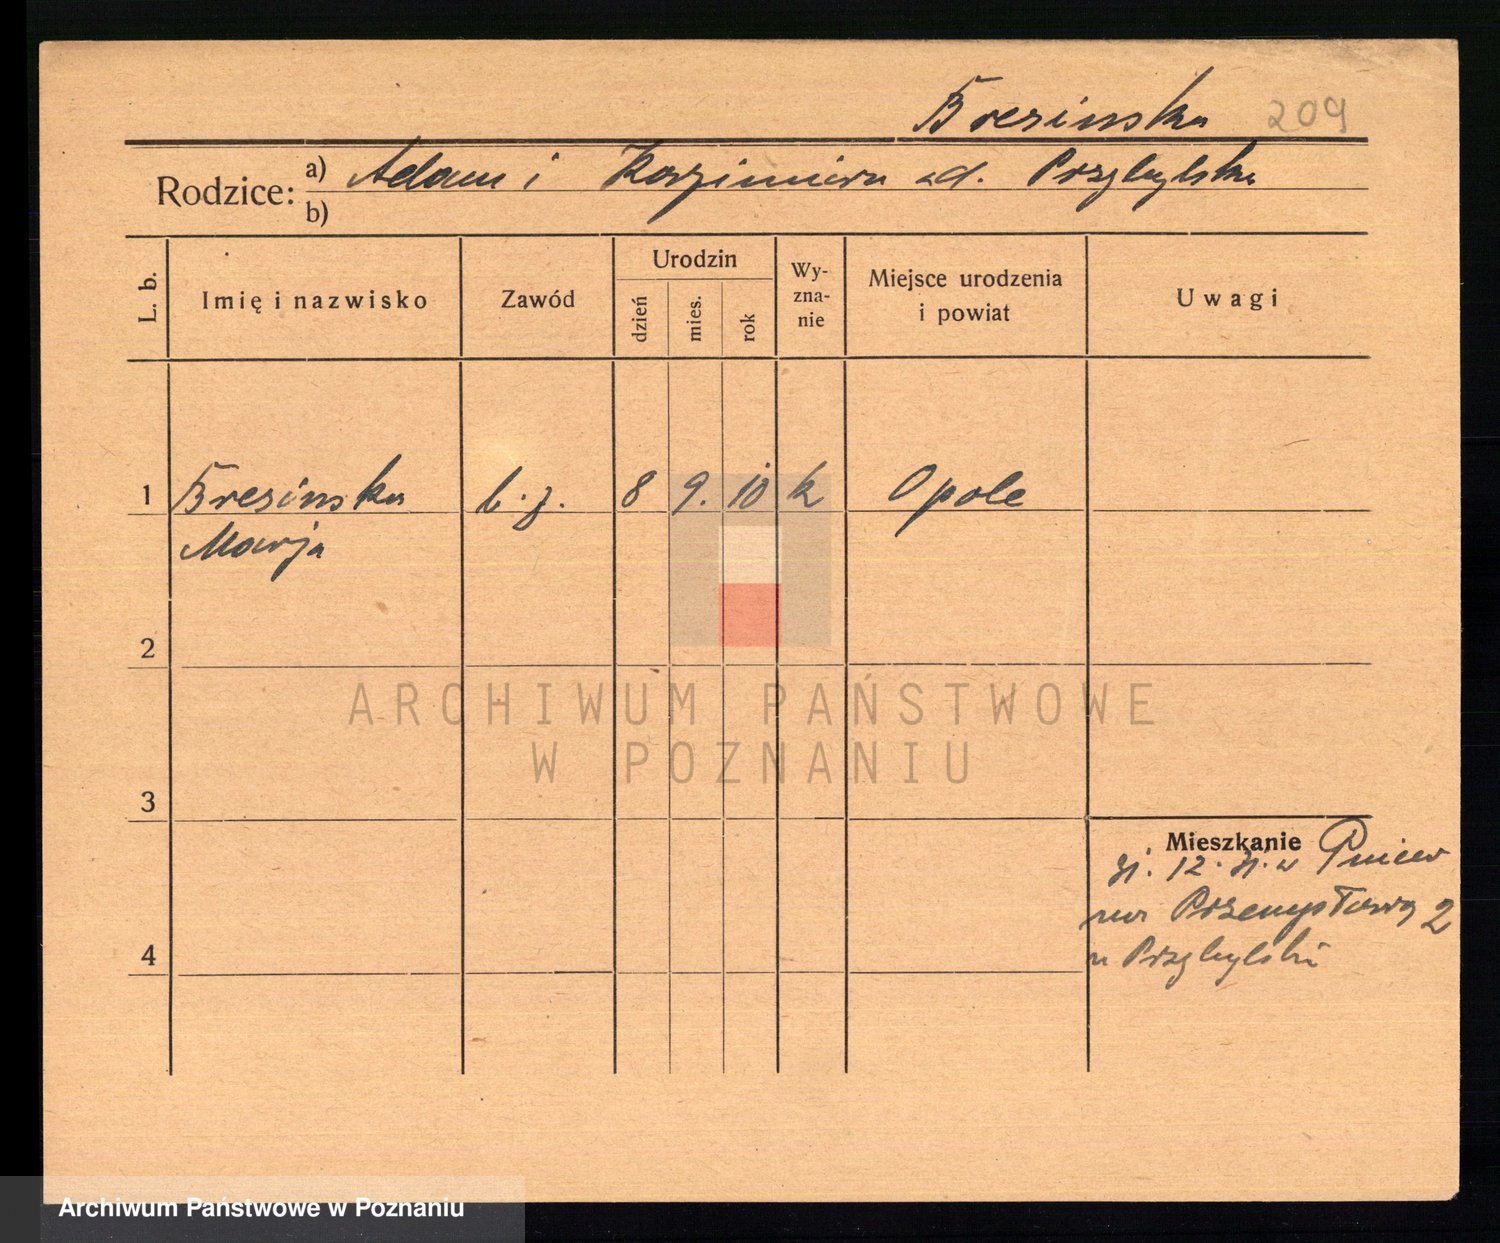 Bresinska 209
Rodzice: a) Adam i Kazimiera zd. Przybylska
b)
L. b. Imię i nazwisko Zawód Urodzin dzień mies. rok Wyznanie Miejsce urodzenia i powiat Uwagi
1 Bresinska b. z. 8 9. 10 k Opole
Marja
2
3
4
Mieszkanie Pniew
12.
Przemysłowa 2
u Przybylski
ARCHIWUM PAŃSTWOWE
W POZNANIU
Archiwum Państwowe w Poznaniu